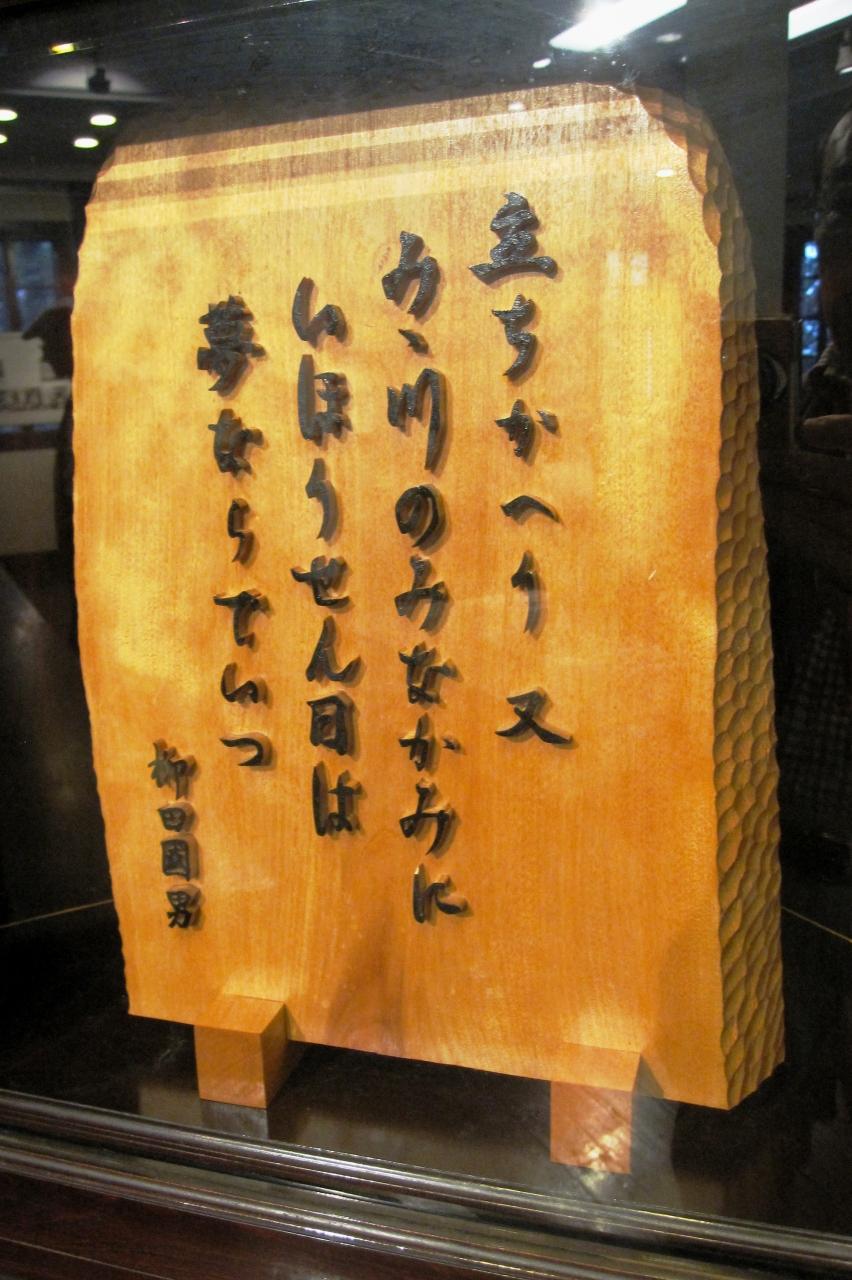 立ちかへり 又
みゝ川のみなかみに
いほりせん日は
夢ならでいつ
柳田國男